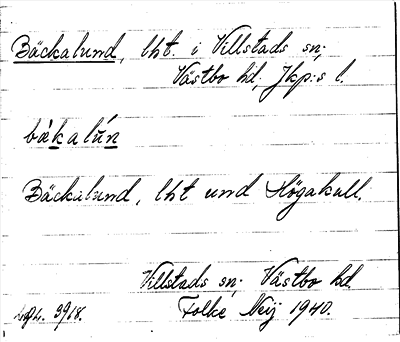 Bäckalund, lht. i Villstads sn;
Västbo hd, Jkp:s l.
bàkalún
Bäckalund, lht und Högakull.
Villstads sn; Västbo hd
Folke Neij 1940.
3968.